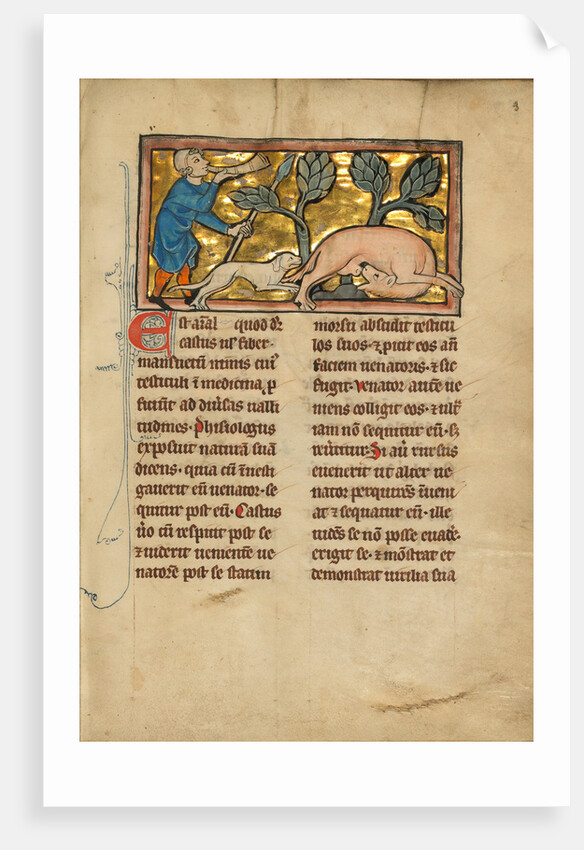 9
Est aı̄al quod dr̄
castus ul' fiber·
mansuetū nimis cui'
testiculi ı̄ medicina ꝓ
ficiūt ad diu̾sas ualli
tudines· Phisiologus
exposuit naturā suā
dicens· quia cū ı̄uesti
gauerit eū uenator· se
quitur post eū· Castus
u̾o cū respicit post se
⁊ uiderit uenientē ue
natorē post se statim
morsu abscidit testicu
los suos· ⁊ ꝓicit eos an̄
faciem uenatoris· ⁊ sic
fugit· Venator autē ue
niens colligit eos· ⁊ ult̾
iam nō sequitur eū· s;
reu̾titur· Si aū rursus
euenerit ut alter ue
nator perquirēs īueni
at ⁊ sequatur eū· ille
uidēs se nō posse euade̾·
erigit se· ⁊ mōstrat et
demonstrat uirilia sua